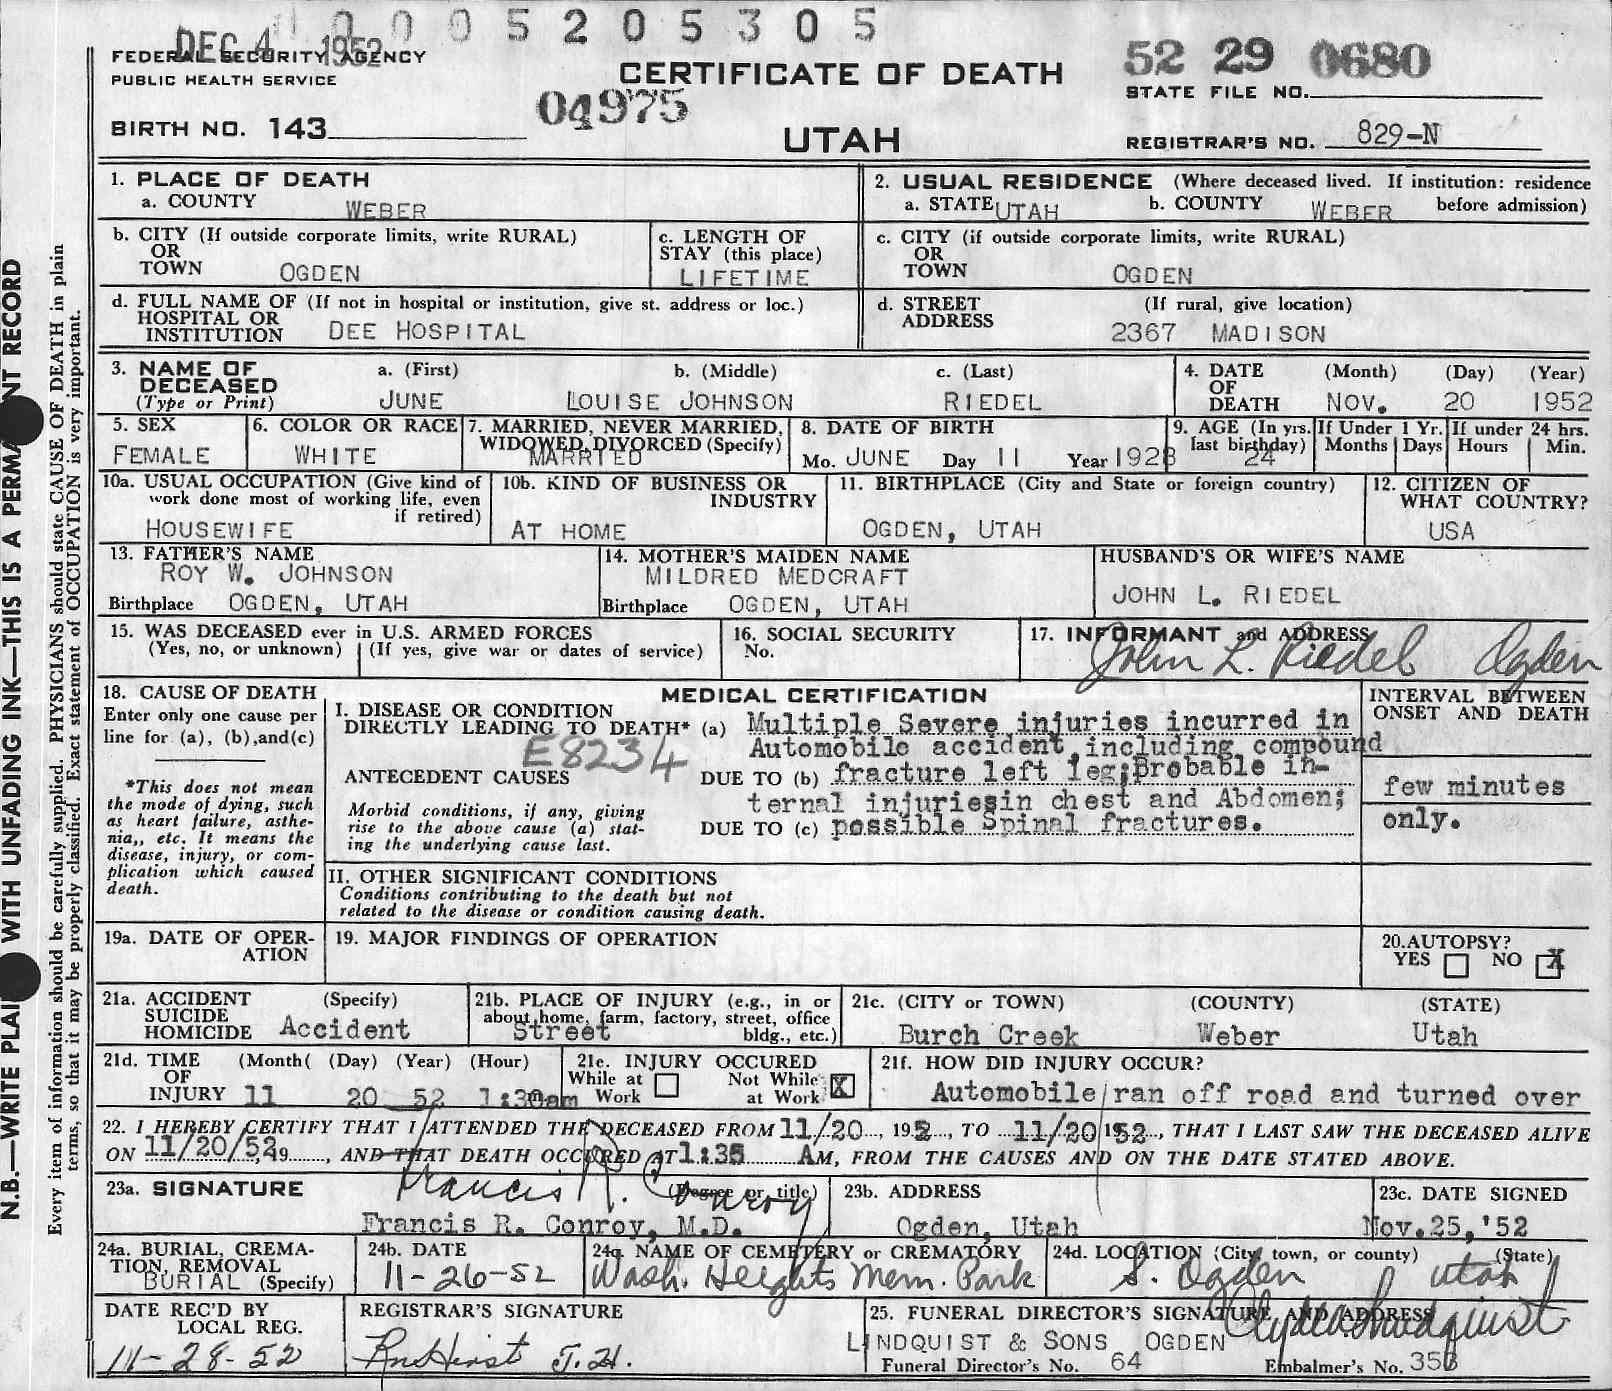 0 0 0 5 2 0 5 3 0 5
DEC 4 1952
FEDERAL SECURITY AGENCY
PUBLIC HEALTH SERVICE
CERTIFICATE OF DEATH
52 29 0680
STATE FILE NO.
04975
BIRTH NO. 143
UTAH
REGISTRAR'S NO. 829-N
1. PLACE OF DEATH
a. COUNTY WEBER
2. USUAL RESIDENCE (Where deceased lived. If institution: residence before admission)
a. STATE UTAH b. COUNTY WEBER
b. CITY (If outside corporate limits, write RURAL)
OR
TOWN OGDEN
c. LENGTH OF
STAY (this place)
LIFETIME
c. CITY (if outside corporate limits, write RURAL)
OR
TOWN OGDEN
d. FULL NAME OF (If not in hospital or institution, give st. address or loc.)
HOSPITAL OR
INSTITUTION DEE HOSPITAL
d. STREET (If rural, give location)
ADDRESS 2367 MADISON
3. NAME OF
DECEASED
(Type or Print)
a. (First) b. (Middle) c. (Last)
JUNE LOUISE JOHNSON RIEDEL
4. DATE (Month) (Day) (Year)
OF
DEATH NOV. 20 1952
5. SEX
FEMALE
6. COLOR OR RACE
WHITE
7. MARRIED, NEVER MARRIED,
WIDOWED, DIVORCED (Specify)
MARRIED
8. DATE OF BIRTH
Mo. JUNE Day 11 Year 1928
9. AGE (In yrs. last birthday) 24
If Under 1 Yr. Months Days
If under 24 hrs. Hours Min.
10a. USUAL OCCUPATION (Give kind of
work done most of working life, even
if retired)
HOUSEWIFE
10b. KIND OF BUSINESS OR
INDUSTRY
AT HOME
11. BIRTHPLACE (City and State or foreign country)
OGDEN, UTAH
12. CITIZEN OF
WHAT COUNTRY?
USA
13. FATHER'S NAME
ROY W. JOHNSON
Birthplace OGDEN, UTAH
14. MOTHER'S MAIDEN NAME
MILDRED MEDCRAFT
Birthplace OGDEN, UTAH
HUSBAND'S OR WIFE'S NAME
JOHN L. RIEDEL
15. WAS DECEASED ever in U.S. ARMED FORCES
(Yes, no, or unknown) (If yes, give war or dates of service)
16. SOCIAL SECURITY
No.
17. INFORMANT and ADDRESS
John L. Riedel Ogden
18. CAUSE OF DEATH
Enter only one cause per
line for (a), (b),and(c)
*This does not mean
the mode of dying, such
as heart failure, asthe-
nia,, etc. It means the
disease, injury, or com-
plication which caused
death.
MEDICAL CERTIFICATION
I. DISEASE OR CONDITION
DIRECTLY LEADING TO DEATH* (a) Multiple Severe injuries incurred in
Automobile accident, including compound
E8234
ANTECEDENT CAUSES DUE TO (b) fracture left leg; Probable in-
Morbid conditions, if any, giving
rise to the above cause (a) stat-
ing the underlying cause last.
ternal injuriesin chest and Abdomen;
DUE TO (c) possible Spinal fractures.
INTERVAL BETWEEN
ONSET AND DEATH
few minutes
only.
II. OTHER SIGNIFICANT CONDITIONS
Conditions contributing to the death but not
related to the disease or condition causing death.
19a. DATE OF OPER-
ATION
19. MAJOR FINDINGS OF OPERATION
20. AUTOPSY?
YES NO X
21a. ACCIDENT (Specify)
SUICIDE
HOMICIDE Accident
21b. PLACE OF INJURY (e.g., in or
about home, farm, factory, street, office
bldg., etc.)
Street
21c. (CITY or TOWN) (COUNTY) (STATE)
Burch Creek Weber Utah
21d. TIME (Month( (Day) (Year) (Hour)
OF
INJURY 11 20 52 1:30am
21e. INJURY OCCURED
While at Work Not While at Work X
21f. HOW DID INJURY OCCUR?
Automobile ran off road and turned over
22. I HEREBY CERTIFY THAT I ATTENDED THE DECEASED FROM 11/20, 1952, TO 11/20 1952, THAT I LAST SAW THE DECEASED ALIVE
ON 11/20/52, 19, AND THAT DEATH OCCURED AT 1:35 AM, FROM THE CAUSES AND ON THE DATE STATED ABOVE.
23a. SIGNATURE (Degree or title)
Francis R. Conroy
Francis R. Conroy, M.D.
23b. ADDRESS
Ogden, Utah
23c. DATE SIGNED
Nov.25,'52
24a. BURIAL, CREMA-
TION, REMOVAL
BURIAL (Specify)
24b. DATE
11-26-52
24c. NAME OF CEMETERY or CREMATORY
Wash. Heights Mem. Park
24d. LOCATION (City, town, or county) (State)
S. Ogden Utah
DATE REC'D BY
LOCAL REG.
11-28-52
REGISTRAR'S SIGNATURE
25. FUNERAL DIRECTOR'S SIGNATURE AND ADDRESS
LINDQUIST & SONS OGDEN
Funeral Director's No. 64 Embalmer's No. 35B
N.B.—WRITE PLAI WITH UNFADING INK—THIS IS A PERMA NT RECORD
Every item of information should be carefully supplied. PHYSICIANS should state CAUSE OF DEATH in plain
terms, so that it may be properly classified. Exact statement of OCCUPATION is very important.